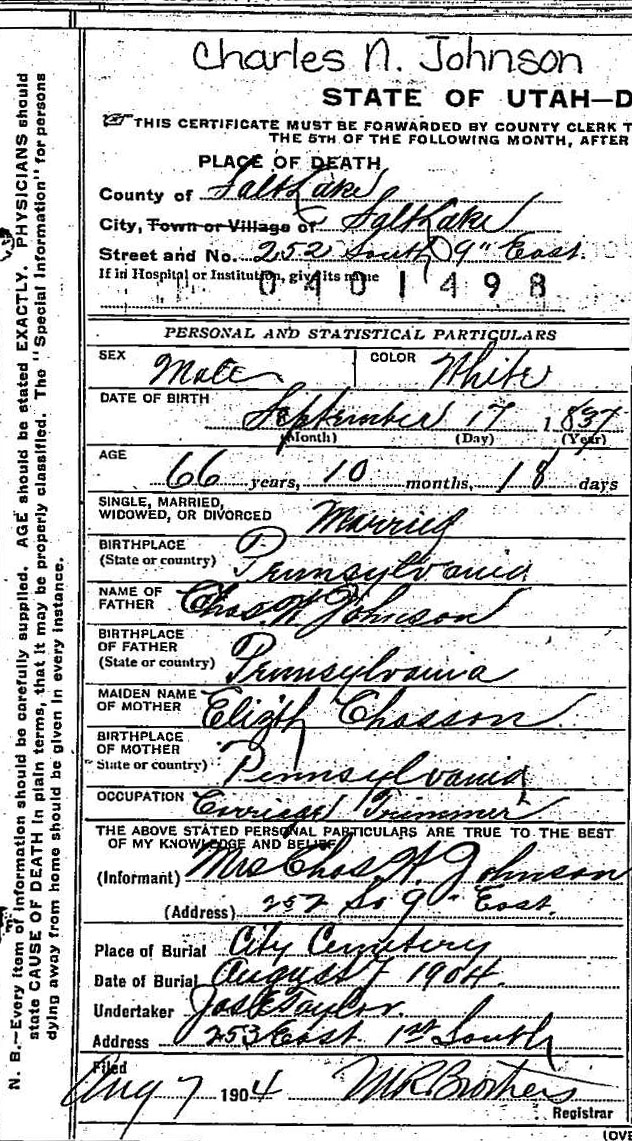 Charles N. Johnson
STATE OF UTAH—D
THIS CERTIFICATE MUST BE FORWARDED BY COUNTY CLERK T
THE 5TH OF THE FOLLOWING MONTH, AFTER
PLACE OF DEATH
County of Salt Lake
City, Town or Village of Salt Lake
Street and No. 252 South 9" East.
If in Hospital or Institution, give its name
0401498
PERSONAL AND STATISTICAL PARTICULARS
SEX Male COLOR White
DATE OF BIRTH
September 17 1837
(Month) (Day) (Year)
AGE
66 years, 10 months, 18 days
SINGLE, MARRIED,
WIDOWED, OR DIVORCED Married
BIRTHPLACE
(State or country) Pennsylvania
NAME OF
FATHER Chas. W. Johnson
BIRTHPLACE
OF FATHER
(State or country) Pennsylvania
MAIDEN NAME
OF MOTHER Elizth Chasson
BIRTHPLACE
OF MOTHER
State or country) Pennsylvania
OCCUPATION Carriage Trimmer
THE ABOVE STATED PERSONAL PARTICULARS ARE TRUE TO THE BEST
OF MY KNOWLEDGE AND BELIEF
(Informant) Mrs Chas. N. Johnson
(Address) 252 So 9" East.
Place of Burial City Cemetery
Date of Burial August 7 1904.
Undertaker Jos E Taylor.
Address 253 East 1st South
Filed
Aug 7 1904 M R Brothers
Registrar
(OVE
N. B.—Every item of information should be carefully supplied. AGE should be stated EXACTLY. PHYSICIANS should
state CAUSE OF DEATH in plain terms, that it may be properly classified. The "Special Information" for persons
dying away from home should be given in every instance.